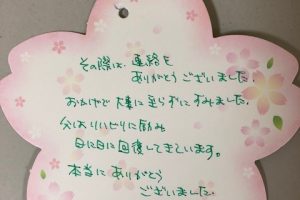 その際は、連絡を
ありがとうございました。
おかげで大事に至らずにすみました。
父はリハビリに励み
日に日に回復してきています。
本当にありがとう
ございました。